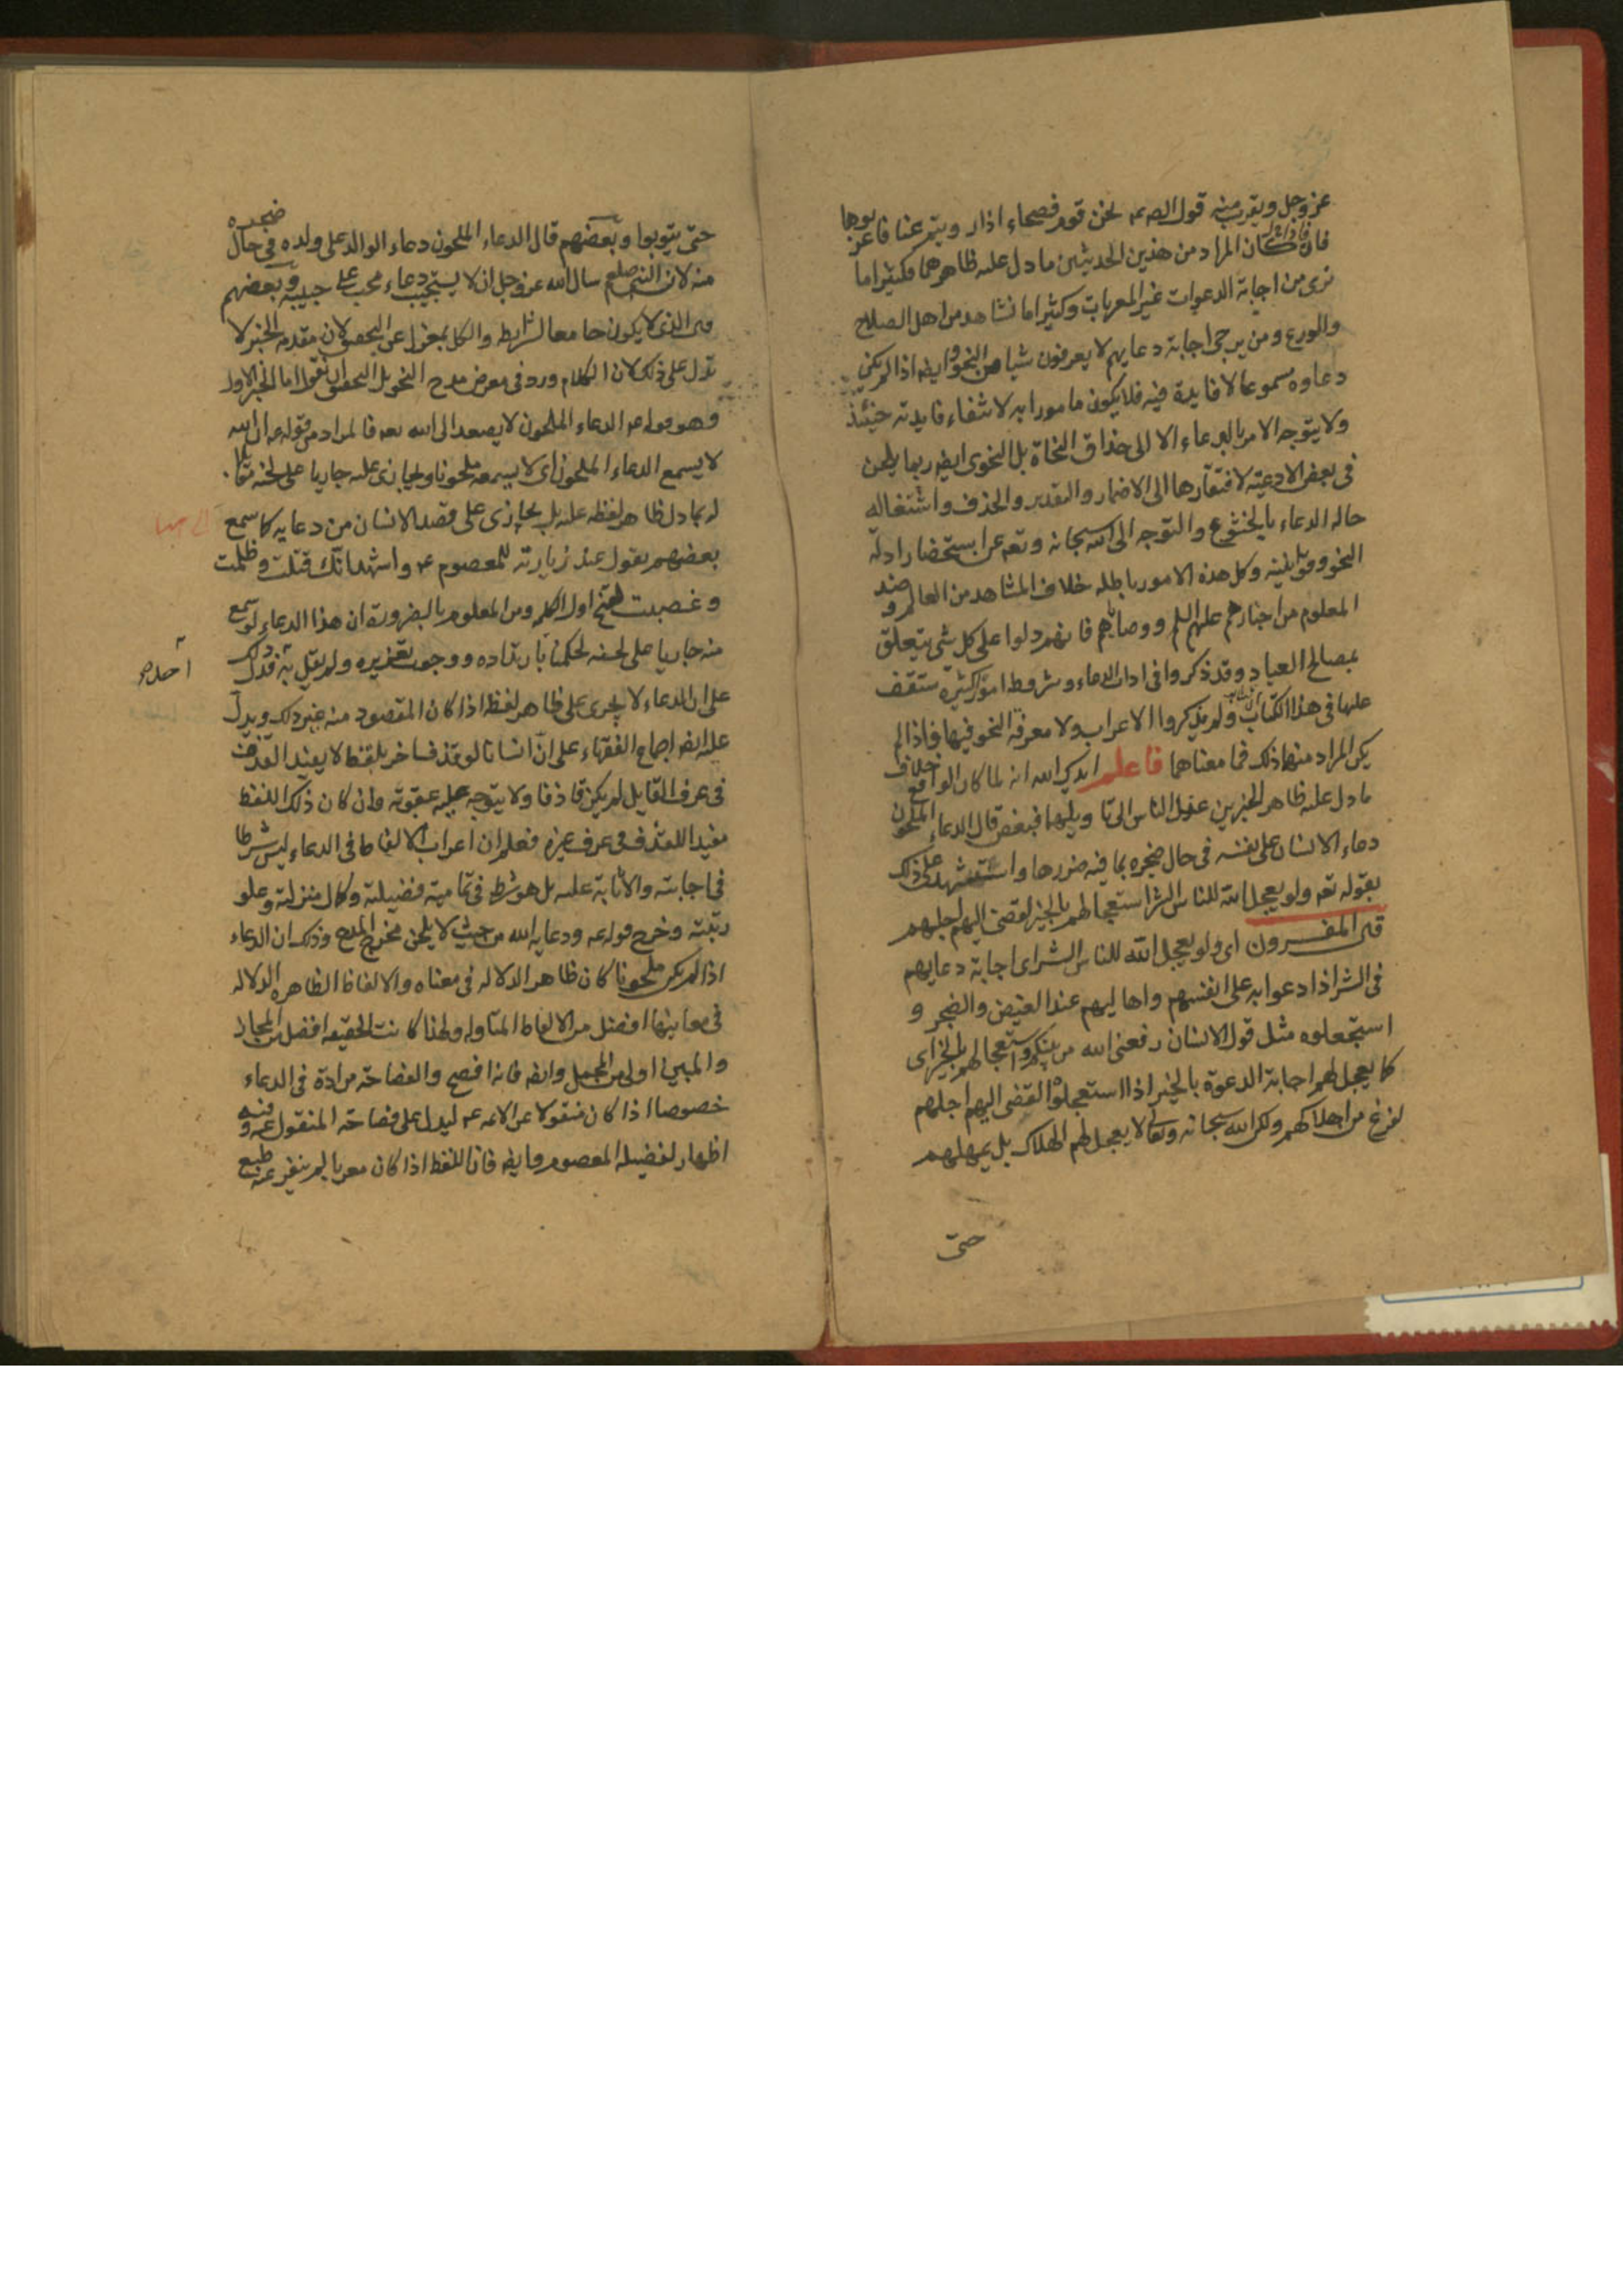 عز وجل ويقرب منه قول الصم نحن قوم فصحاء اذا رويتم عنا فاعربوها
فان كان المراد من هذين الحديثين ما دل عليه ظاهرهما فكثيرا ما
نرى من اجابة الدعوات غير المعربات وكثيرا ما نشاهد من اهل الصلاح
والورع ومن يرجى اجابة دعايهم لا يعرفون شيا من النحو وايضه اذا لم يكن
دعاوه مسموعا لا فايدة فيه فلا يكون مامورا به لانتفاء فايدته حينئذ
ولا يتوجه الامر بالدعاء الا الى حذاق النحاة بل النحوى ايضه ربما يلحن
فى بعض الادعيه لافتقارها الى الاضمار والتقدير والحذف واشتغاله
حاله الدعاء بالخشوع والتوجه الى الله سبحانه وتعه عن استحضار ادلة
النحو وقوانينه وكل هذه الامور باطله خلاف المشاهد من العالم وضد
المعلوم من اخبارهم عليهم السلم ووصاياهم فانهم دلوا على كل شى يتعلق
بمصالح العباد وقد ذكروا فى اداب الدعاء وشروطه امورا كثيرة ستقف
عليها فى هذا الكتاب ولم يذكروا الاعراب ولا معرفة النحو فيها فاذا لم
يكن المراد منهما ذلك فما معناهما فاعلم ايدك الله انه لما كان الواقع خلاف
ما دل عليه ظاهر الخبرين عدل الناس الى تاويلهما فبعض قال الدعاء الملحون
دعاء الانسان على نفسه فى حال ضجره بما فيه ضررها واستشهد على ذلك
بقوله تعه ولو يعجل الله للناس الشر استعجالهم بالخير لقضى اليهم اجلهم
قال المفسرون اى ولو يعجل الله للناس الشر اى اجابة دعايهم
فى الشر اذا دعوا به على انفسهم واهاليهم عند الغيض والضجر و
استعجلوه مثل قول الانسان رفعنى الله من بينكم واستعجالهم بالخير اى
كما يعجل لهم اجابة الدعوة بالخير اذا استعجلوا لقضى اليهم اجلهم
لفرغ من اهلاكهم ولكن الله سبحانه وتعالى لا يعجل لهم الهلاك بل يمهلهم
حتى
حتى يتوبوا وبعضهم قال الدعاء الملحون دعاء الوالد على ولده فى حال ضجره
منه لان النبى صلعم سال الله عز وجل ان لا يستجيب دعاء محب على حبيبه وبعضهم
قال الذى لا يكون جامعا لشرايطه والكل بمعزل عن التحقيق لان مقدمه الخبر لا
تدل على ذلك لان الكلام ورد فى معرض مدح النحو بل التحقيق ان نقول اما الخبر الاول
وهو قوله عه الدعاء الملحون لا يصعد الى الله تعه فالمراد من قوله عه ان الله
لا يسمع الدعاء الملحون اى لا يسمعه ملحونا ويجازى عليه جاريا على لحنه مقابلا
له بما دل ظاهر لفظه عليه بل يجازى على قصد الانسان من دعايه كما سمع
بعضهم يقول عند زيارته للمعصوم عه واشهد انك قتلت وظلمت
وغصبت بفتح اول الكلمه ومن المعلوم بالضرورة ان هذا الدعاء لو سمع
منه جاريا على لحنه لحكمنا بارتداده ووجوب تعزيره ولم يقل به فدل ذلك
احد
على ان الدعاء لا يجرى على ظاهر لفظه اذا كان المقصود منه غير ذلك ويدل
عليه ايضه اجماع الفقهاء على ان انسانا لو قذف اخر بلفظ لا يفيد القذف
فى عرف القايل لم يكن قاذفا ولا يتوجه عليه عقوبه وان كان ذلك اللفظ
مفيدا للقذف فى عرف غيره فعلم ان اعراب الالفاظ فى الدعاء ليس شرطا
فى اجابته والاثابة عليه بل هو شرط فى تمامية فضيلته وكمال منزلته وعلو
رتبته وخرج قوله عه ودعايه الله من حيث لا يلحن مخرج المدح وذلك ان الدعاء
اذا لم يكن ملحونا كان ظاهر الدلاله فى معناه والالفاظ الظاهره الدلاله
فى معانيها افضل من الالفاظ المتاوله ولهذا كانت الحقيقه افضل من المجاز
والمبين اولى من المجمل وايضه فانه افصح والفصاحة مرادة فى الدعاء
خصوصا اذا كان منقولا عن الائمه عه ليدل على فصاحة المنقول عنه وفيه
اظهار لفضيله المعصوم وايضه فان اللفظ اذا كان معربا لم ينفر عنه طبع